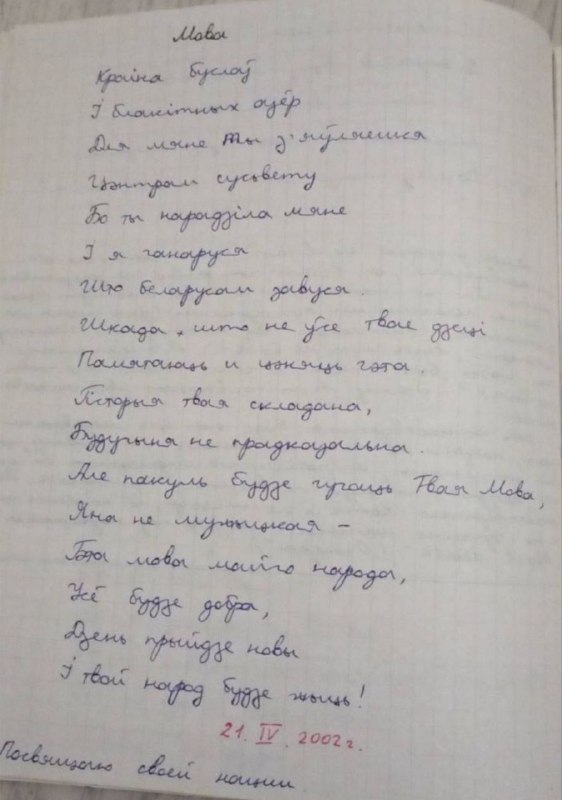 Мова
Краіна буслаў
І блакітных азёр
Для мяне ты з'яўляешся
Цэнтрам сусьвету
Бо ты нарадзіла мяне
І я ганаруся
Што беларусам завуся.
Шкада, што не ўсе твае дзеці
Памятаюць и цэняць гэта.
Гісторыя твая складана,
Будучыня не прадказальна.
Але пакуль будзе гучаць Твая Мова,
Яна не мужыцкая –
Гэта мова майго народа,
Усё будзе добра,
Дзень прыйдзе новы
І твой народ будзе жыць!
21. IV. 2002 г.
Посвящаю своей нации.